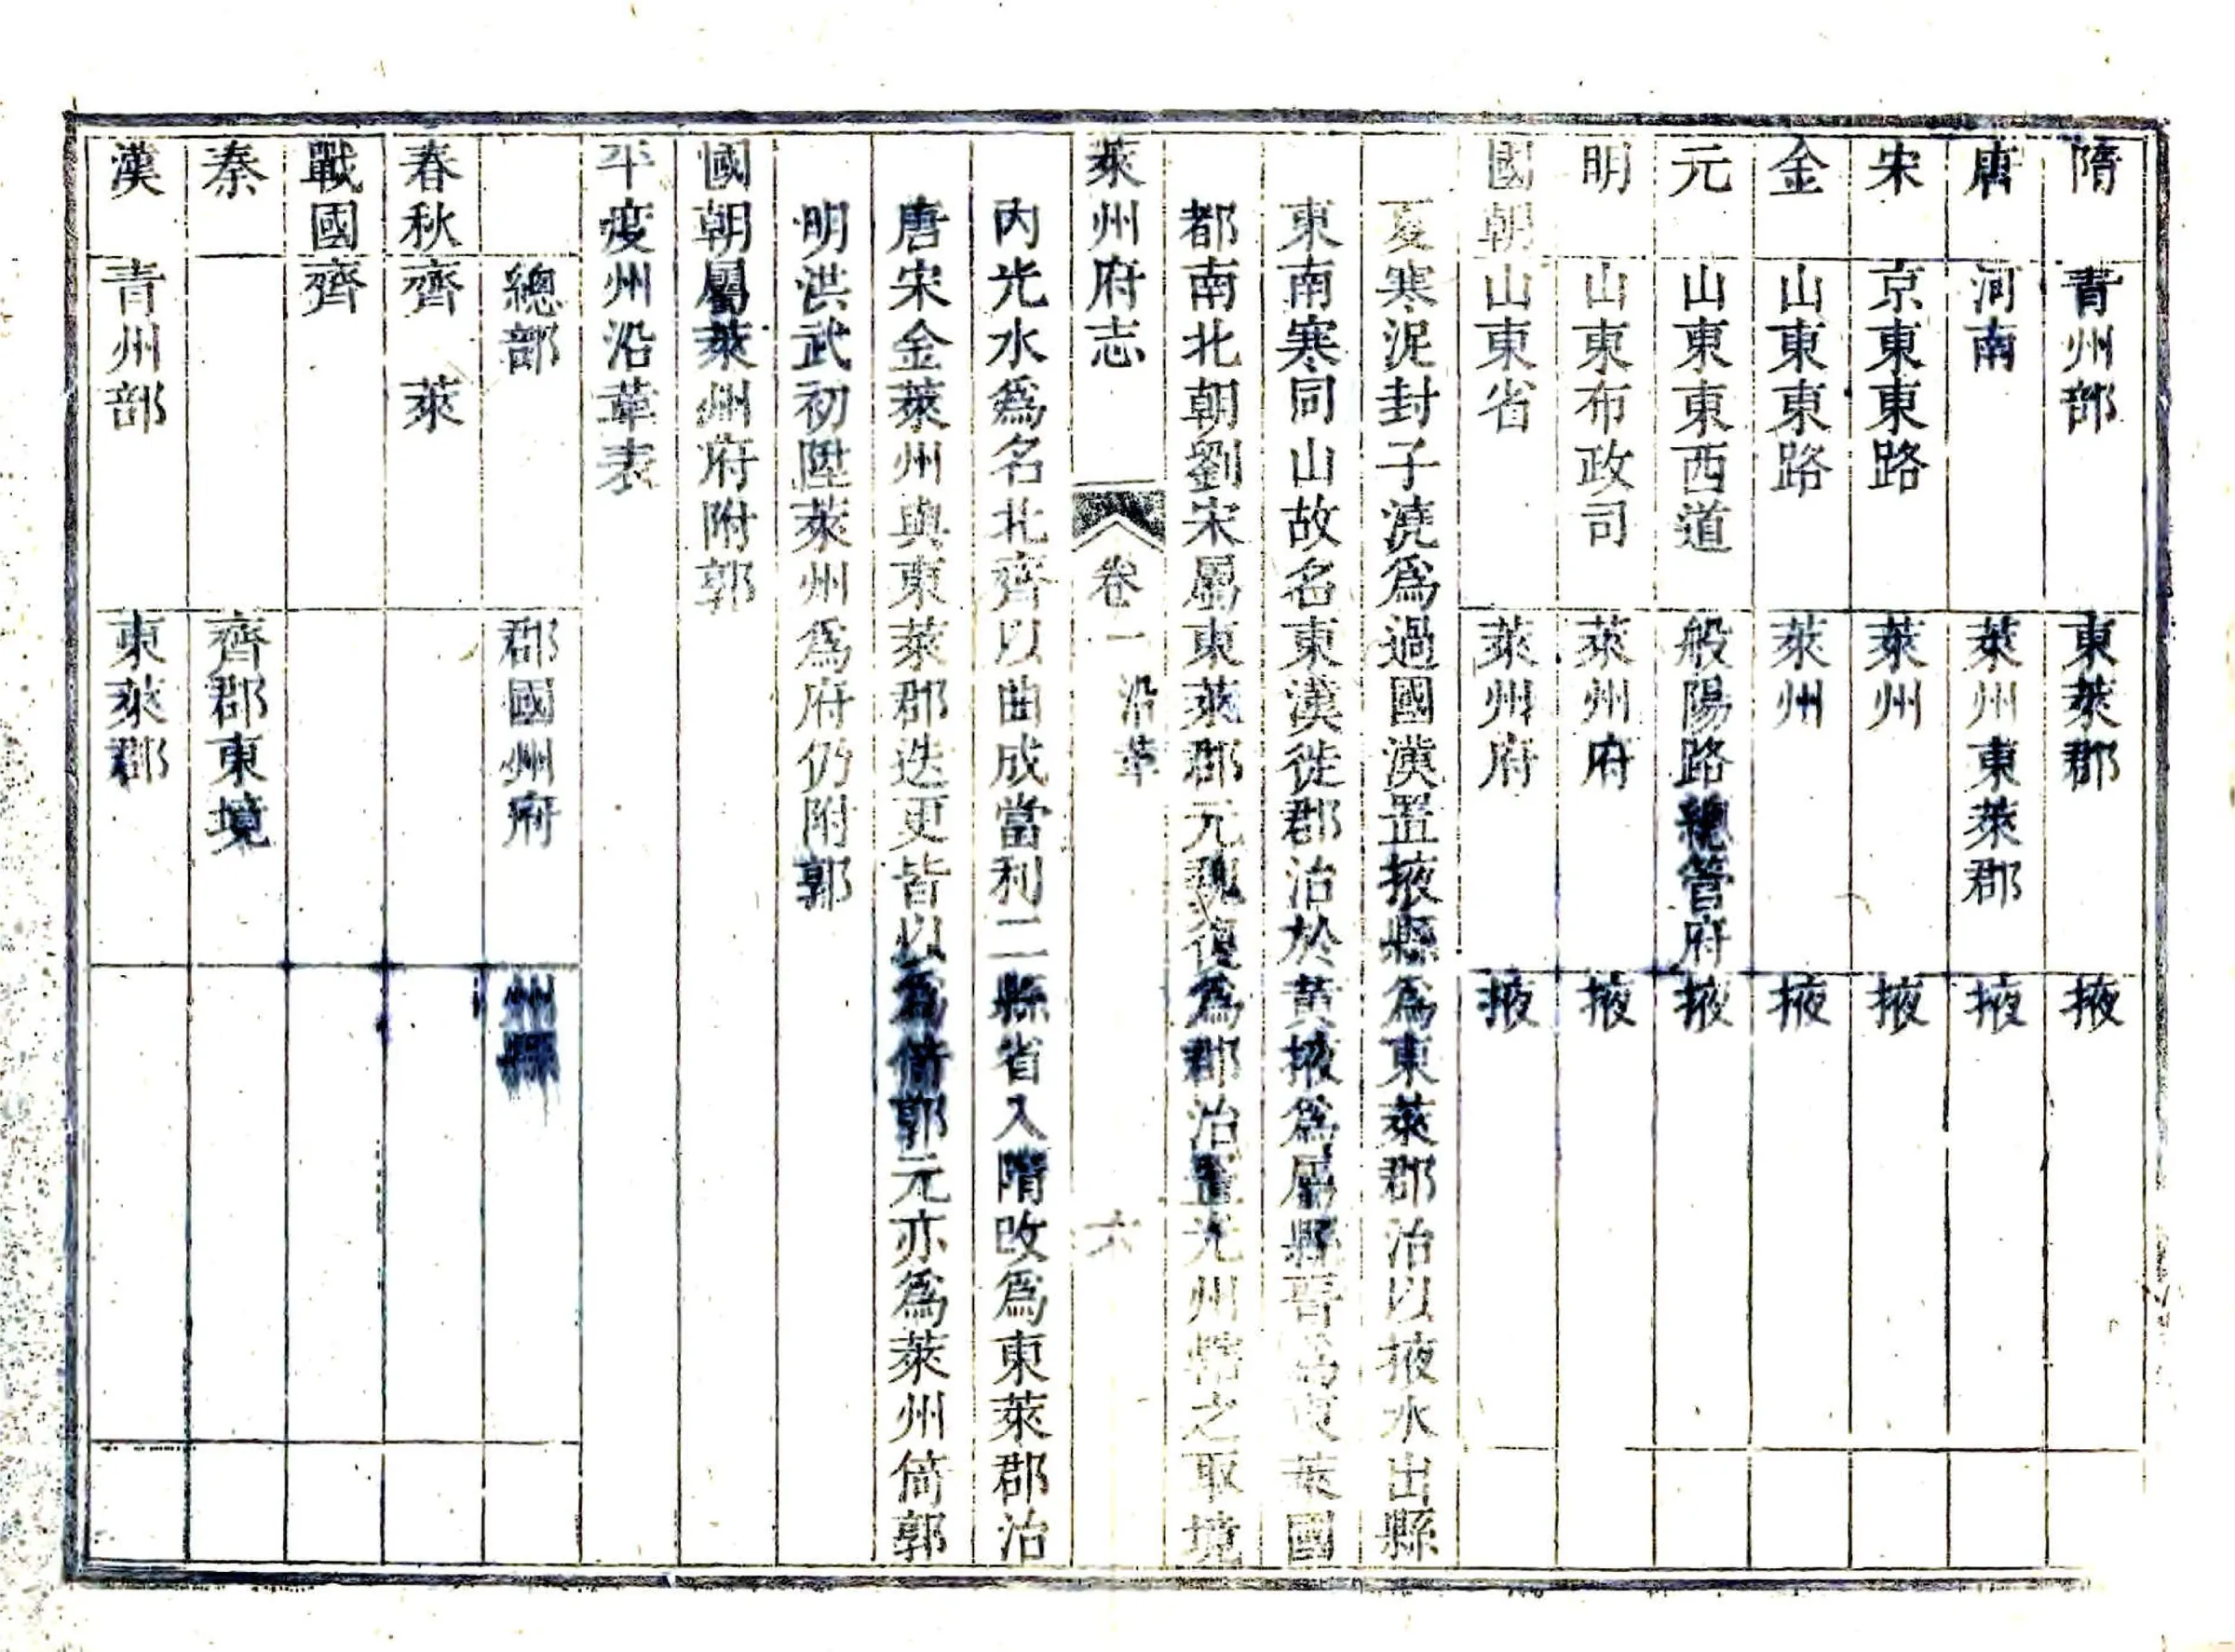 隋 青州部 東萊郡 掖
唐 河南 萊州東萊郡 掖
宋 京東東路 萊州 掖
金 山東東路 萊州 掖
元 山東東西道 般陽路總管府 掖
明 山東布政司 萊州府 掖
國朝 山東省 萊州府 掖
夏寒浞封子澆爲過國漢置掖縣爲東萊郡治以掖水出縣
東南寒同山故名東漢徙郡治於黃掖爲屬縣晉爲東萊國
都南北朝劉宋屬東萊郡元魏復爲郡治置光州轄之取境
萊州府志 卷一 沿革 六
內光水爲名北齊以曲成當利二縣省入隋改爲東萊郡治
唐宋金萊州與東萊郡迭更皆以爲倚郭元亦爲萊州倚郭
明洪武初陞萊州爲府仍附郭
國朝屬萊州府附郭
平度州沿革表
總部 郡國州府 州縣
春秋 齊 萊
戰國 齊
秦 齊郡東境
漢 青州部 東萊郡